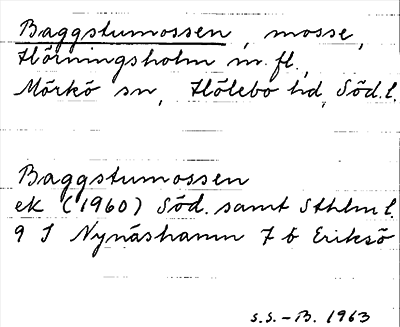 Baggstumossen, mosse,
Hörningsholm m.fl.,
Mörkö sn, Hölebo hd, Söd.l.
Baggstumossen
ek (1960) Söd. samt Sthlm l.
9 I Nynäshamn 7 b Eriksö
S.S.-B. 1963